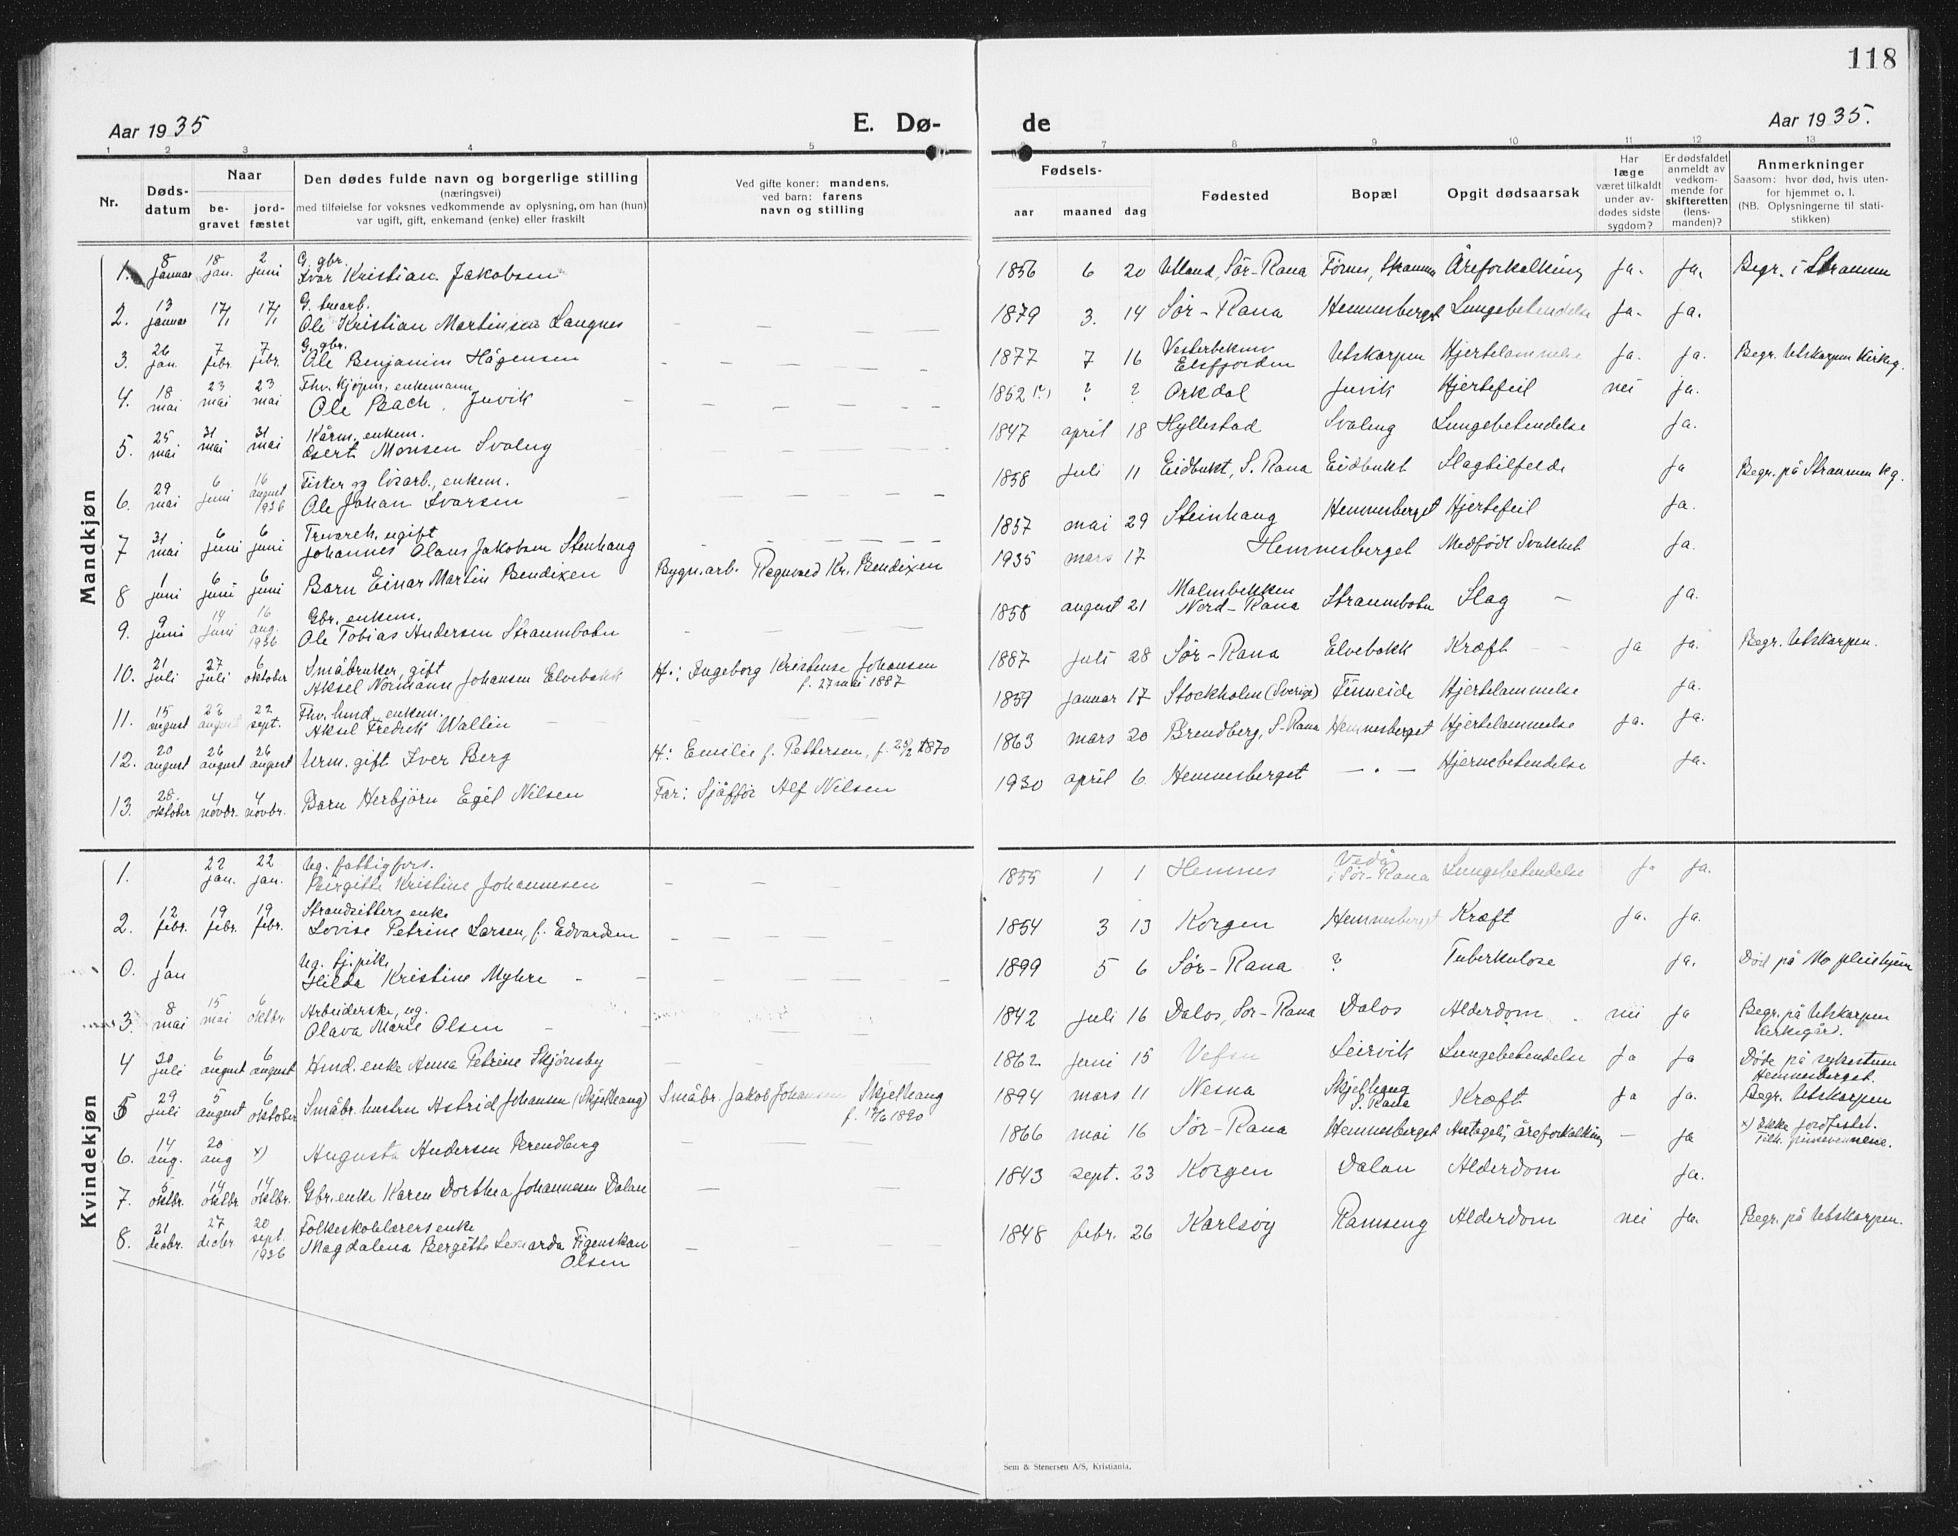 118
Aar 1935
E. Dø-
de
Aar 1935.
1 2 3 4 5
7 8 9 10 11 12 13
Nr.
Døds-
datum
Naar
be-
gravet
jord-
fæstet
Den dødes fulde navn og borgerlige stilling
(næringsvei)
med tilføielse for voksnes vedkommende av oplysning, om han (hun)
var ugift, gift, enkemand (enke) eller fraskilt
Ved gifte koner: mandens,
ved barn: farens
navn og stilling
Fødsels-
aar maaned dag
Fødested
Bopæl
Opgit dødsaarsak
Har
læge
været tilkaldt
under av-
dødes sidste
sygdom?
Er dødsfaldet
anmeldt av
vedkom-
mende for
skifteretten
(lens-
manden)?
Anmerkninger
Saasom: hvor død, hvis uten-
for hjemmet o. l.
(NB. Oplysningerne til stati-
stikken)
Mandkjøn
1. 8 januar 18 jan. 2 juni G. gbr. Ivar Kristian Jakobsen 1856 6 20 Utland, Sør-Rana Førnes, Straumen Åreforkalkning ja. ja. Begr. i Straumen
2. 13 januar 17/1 17/1 G. Ole Kristian Martinsen Langnes 1879 3. 14 Sør-Rana Hemnesberget Lungebetendelse ja. ja.
3. 26 jan. 7 febr. 7 febr. G. gbr. Ole Benjamin Hågensen 1877 7 16 Elsfjorden Utskarpen Hjertelammelse ja. ja. Begr. Utskarpen kirkg.
4. 18 mai 23 mai 23 mai Fhv. kjøpm., enkemann Ole Bach, Juvik 1852 (?) ? ? Orkdal Juvik Hjertefeil nei ja.
5. 25 mai 31 mai 31 mai Kårm. enkem. Monsen Svaleng 1847 april 18 Hyllestad Svaleng Lungebetendelse ja.
6. 29 mai 6 juni 16 august 1936 Fisker og løsarb., enkem. Ole Johan Ivarsen 1858 juli 11 Eidbukt, S. Rana Eidbukt Slagtilfelde ja Begr. på Straumen kg.
7 31 mai 6 juni 6 juni ugift Johannes Olaus Jakobsen Stenhaug 1857 mai 29 Steinhaug Hemnesberget Hjertefeil ja.
8 1 juni 6 juni 6 juni Barn Einar Martin Bendixen Bygn.arb. Ragnvald Kr. Bendixen 1935 mars 17 Hemnesberget Medfødt Svakhet ja.
9. 9 juni 14 juni 16 aug. 1936 Gbr. enkem. Ole Tobias Andersen Straumbotn 1858 august 21 Malmbekken Nord-Rana Straumbotn Slag ja.
10. 21 juli 27 juli 6 oktober Småbruker, gift Aksel Normann Johansen Elvebakk H.: Ingeborg Kristense Johansen f. 27 mai 1887 1887 juli 28 Sør-Rana Elvebakk Kræft ja ja. Begr. Utskarpen.
11. 15 august 22 august 22 sept. Fhv. hmd. enkem. Aksel Fredrik Wallin 1859 januar 17 Stockholm (Sverige) Finneide Hjertelammelse ja.
12. 20 august 26 august 26 august Urm. gift Iver Berg H: Emilie f. Pettersen, f. 25/2 1870 1863 mars 20 Brendberg, S-Rana Hemnesberget Hjertelammelse ja. ja.
13. 28. oktober 4 novbr. 4 novbr. Barn Herbjørn Egil Nilsen Far: Sjåffør Alf Nilsen 1930 april 6. Hemnesberget — " — Hjernebetendelse ja.
Kvindekjøn
1. 22 jan. 22 jan. Ug. fattigfors. Bergitte Kristine Johannesen 1855 1 1 Hemnes i Sør-Rana Lungebetendelse ja ja.
2. 12 febr. 19 febr. 19 febr. Strandsitters enke Lovise Petrine Larsen, f. Edvardsen 1854 3 13 Korgen Hemnesberget Kræft ja. ja.
0. 1 jan Ug. tj.pike Hilda Kristine Myhre 1899 5 6 Sør-Rana ? Tuberkulose ja. Død på Mo pleiehjem
3. 8 mai 15 mai 6 oktbr Arbeiderske, ug. Olava Marie Olsen 1842 juli 16 Dalos, Sør-Rana Dalos Alderdom nei ja Begr. på Utskarpen kirkegård.
4 20 juli 6 august 6 august Hmd. enke Anna Petrine Skjønsby 1862 juni 15 Vefsn Leirvik Lungebetendelse ja ja Døde på sykestuen Hemnesberget.
5 29 juli 5 august 6 oktober Småbr. hustru Astrid Johansen (Skjelhaug) Småbr. Jakob Johansen Skjelhaug f. 17/6 1890 1894 mars 11 Nesna Skjelhaug S. Rana Kræft ja ja. Begr. Utskarpen
6. 14 aug. 20 aug x) Augusta Andersen Brendberg 1866 mai 16 Sør-Rana Hemnesberget Antagelig åreforkalkning — ja x) Ikke jordfestet. Tilh. pinsevennene.
7. 5 oktbr. 14 oktbr. 14 oktbr. Gbr. enke Karen Dorthea Johannesen Dalan 1843 sept. 23 Korgen Dalan Alderdom ja.
8. 21 decbr. 27 decbr 20 sept. 1936 Folkeskolelærers enke Magdalena Bergitte Leonarda Figenskau Olsen 1848 febr. 26 Karlsøy Ramseng Alderdom nei ja. Begr. på Utskarpen.
Sem & Stenersen A/S, Kristiania.